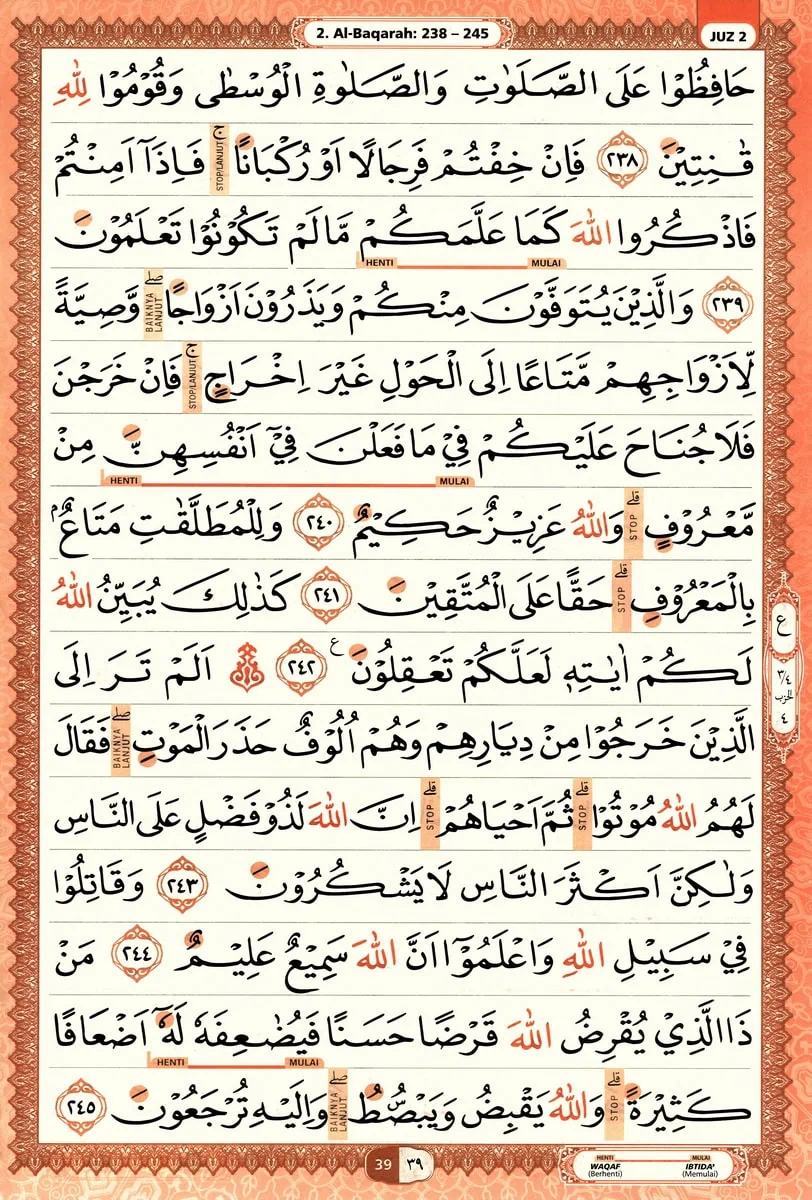 2. Al-Baqarah: 238 – 245
JUZ 2
حَافِظُوْا عَلَى الصَّلَوٰتِ وَالصَّلٰوةِ الْوُسْطٰى وَقُوْمُوْا لِلّٰهِ
قٰنِتِيْنَ ٢٣٨ فَاِنْ خِفْتُمْ فَرِجَالًا اَوْ رُكْبَانًا ۚ STOP/LANJUT فَاِذَآ اَمِنْتُمْ
فَاذْكُرُوا اللّٰهَ كَمَا عَلَّمَكُمْ مَّا لَمْ تَكُوْنُوْا تَعْلَمُوْنَ
HENTI MULAI
٢٣٩ وَالَّذِيْنَ يُتَوَفَّوْنَ مِنْكُمْ وَيَذَرُوْنَ اَزْوَاجًا ۖ BAIKNYA LANJUT وَّصِيَّةً
لِّاَزْوَاجِهِمْ مَّتَاعًا اِلَى الْحَوْلِ غَيْرَ اِخْرَاجٍ ۚ STOP/LANJUT فَاِنْ خَرَجْنَ
فَلَا جُنَاحَ عَلَيْكُمْ فِيْ مَا فَعَلْنَ فِيْٓ اَنْفُسِهِنَّ مِنْ
HENTI MULAI
مَّعْرُوْفٍ ۗ STOP وَاللّٰهُ عَزِيْزٌ حَكِيْمٌ ٢٤٠ وَلِلْمُطَلَّقٰتِ مَتَاعٌ ۢ
بِالْمَعْرُوْفِ ۗ STOP حَقًّا عَلَى الْمُتَّقِيْنَ ٢٤١ كَذٰلِكَ يُبَيِّنُ اللّٰهُ
لَكُمْ اٰيٰتِهٖ لَعَلَّكُمْ تَعْقِلُوْنَ ع ٢٤٢ اَلَمْ تَرَ اِلَى
الَّذِيْنَ خَرَجُوْا مِنْ دِيَارِهِمْ وَهُمْ اُلُوْفٌ حَذَرَ الْمَوْتِ ۖ BAIKNYA LANJUT فَقَالَ
لَهُمُ اللّٰهُ مُوْتُوْا ۗ STOP ثُمَّ اَحْيَاهُمْ ۗ STOP اِنَّ اللّٰهَ لَذُوْ فَضْلٍ عَلَى النَّاسِ
وَلٰكِنَّ اَكْثَرَ النَّاسِ لَا يَشْكُرُوْنَ ٢٤٣ وَقَاتِلُوْا
فِيْ سَبِيْلِ اللّٰهِ وَاعْلَمُوْٓا اَنَّ اللّٰهَ سَمِيْعٌ عَلِيْمٌ ٢٤٤ مَنْ
ذَا الَّذِيْ يُقْرِضُ اللّٰهَ قَرْضًا حَسَنًا فَيُضٰعِفَهٗ لَهٗٓ اَضْعَافًا
HENTI MULAI
كَثِيْرَةً ۗ STOP وَاللّٰهُ يَقْبِضُ وَيَبْصُۣطُ ۖ BAIKNYA LANJUT وَاِلَيْهِ تُرْجَعُوْنَ ٢٤٥
ع
٣/٤
الحزب
٤
39 ٣٩
HENTI MULAI
WAQAF IBTIDA'
(Berhenti) (Memulai)